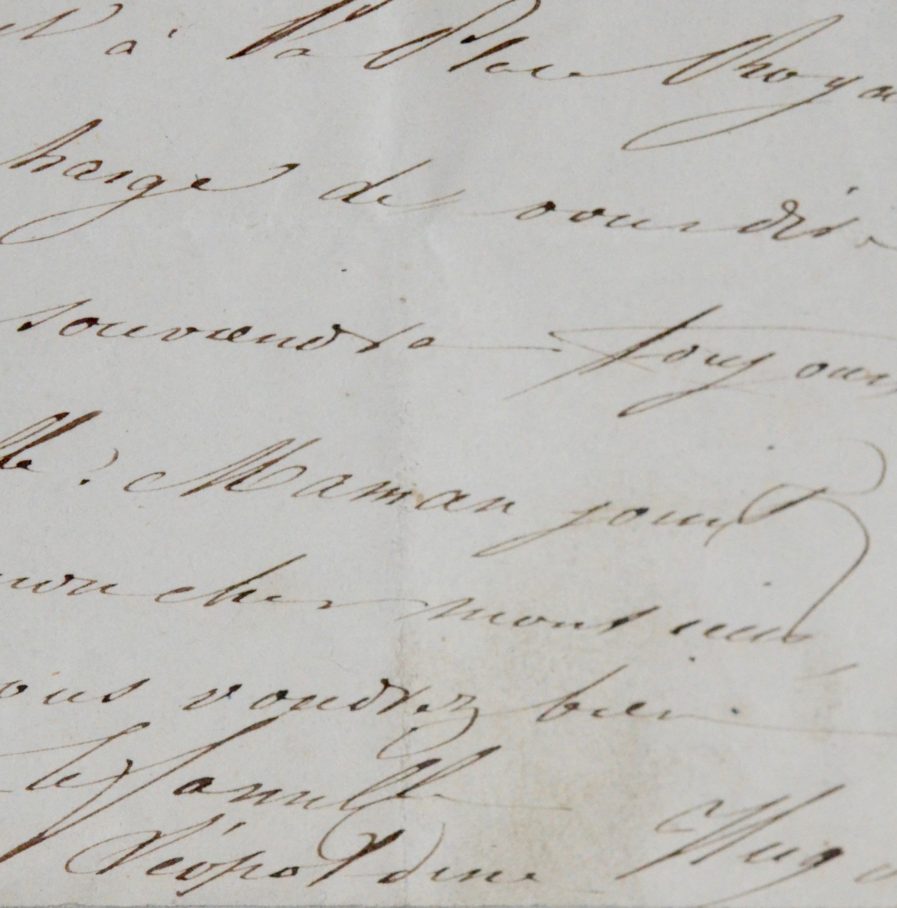 à la Place Roya
charge de vous dire
souviendra toujours
Maman joint
mon cher monsieur,
vous voudrez bien
famille
Léopoldine Hugo